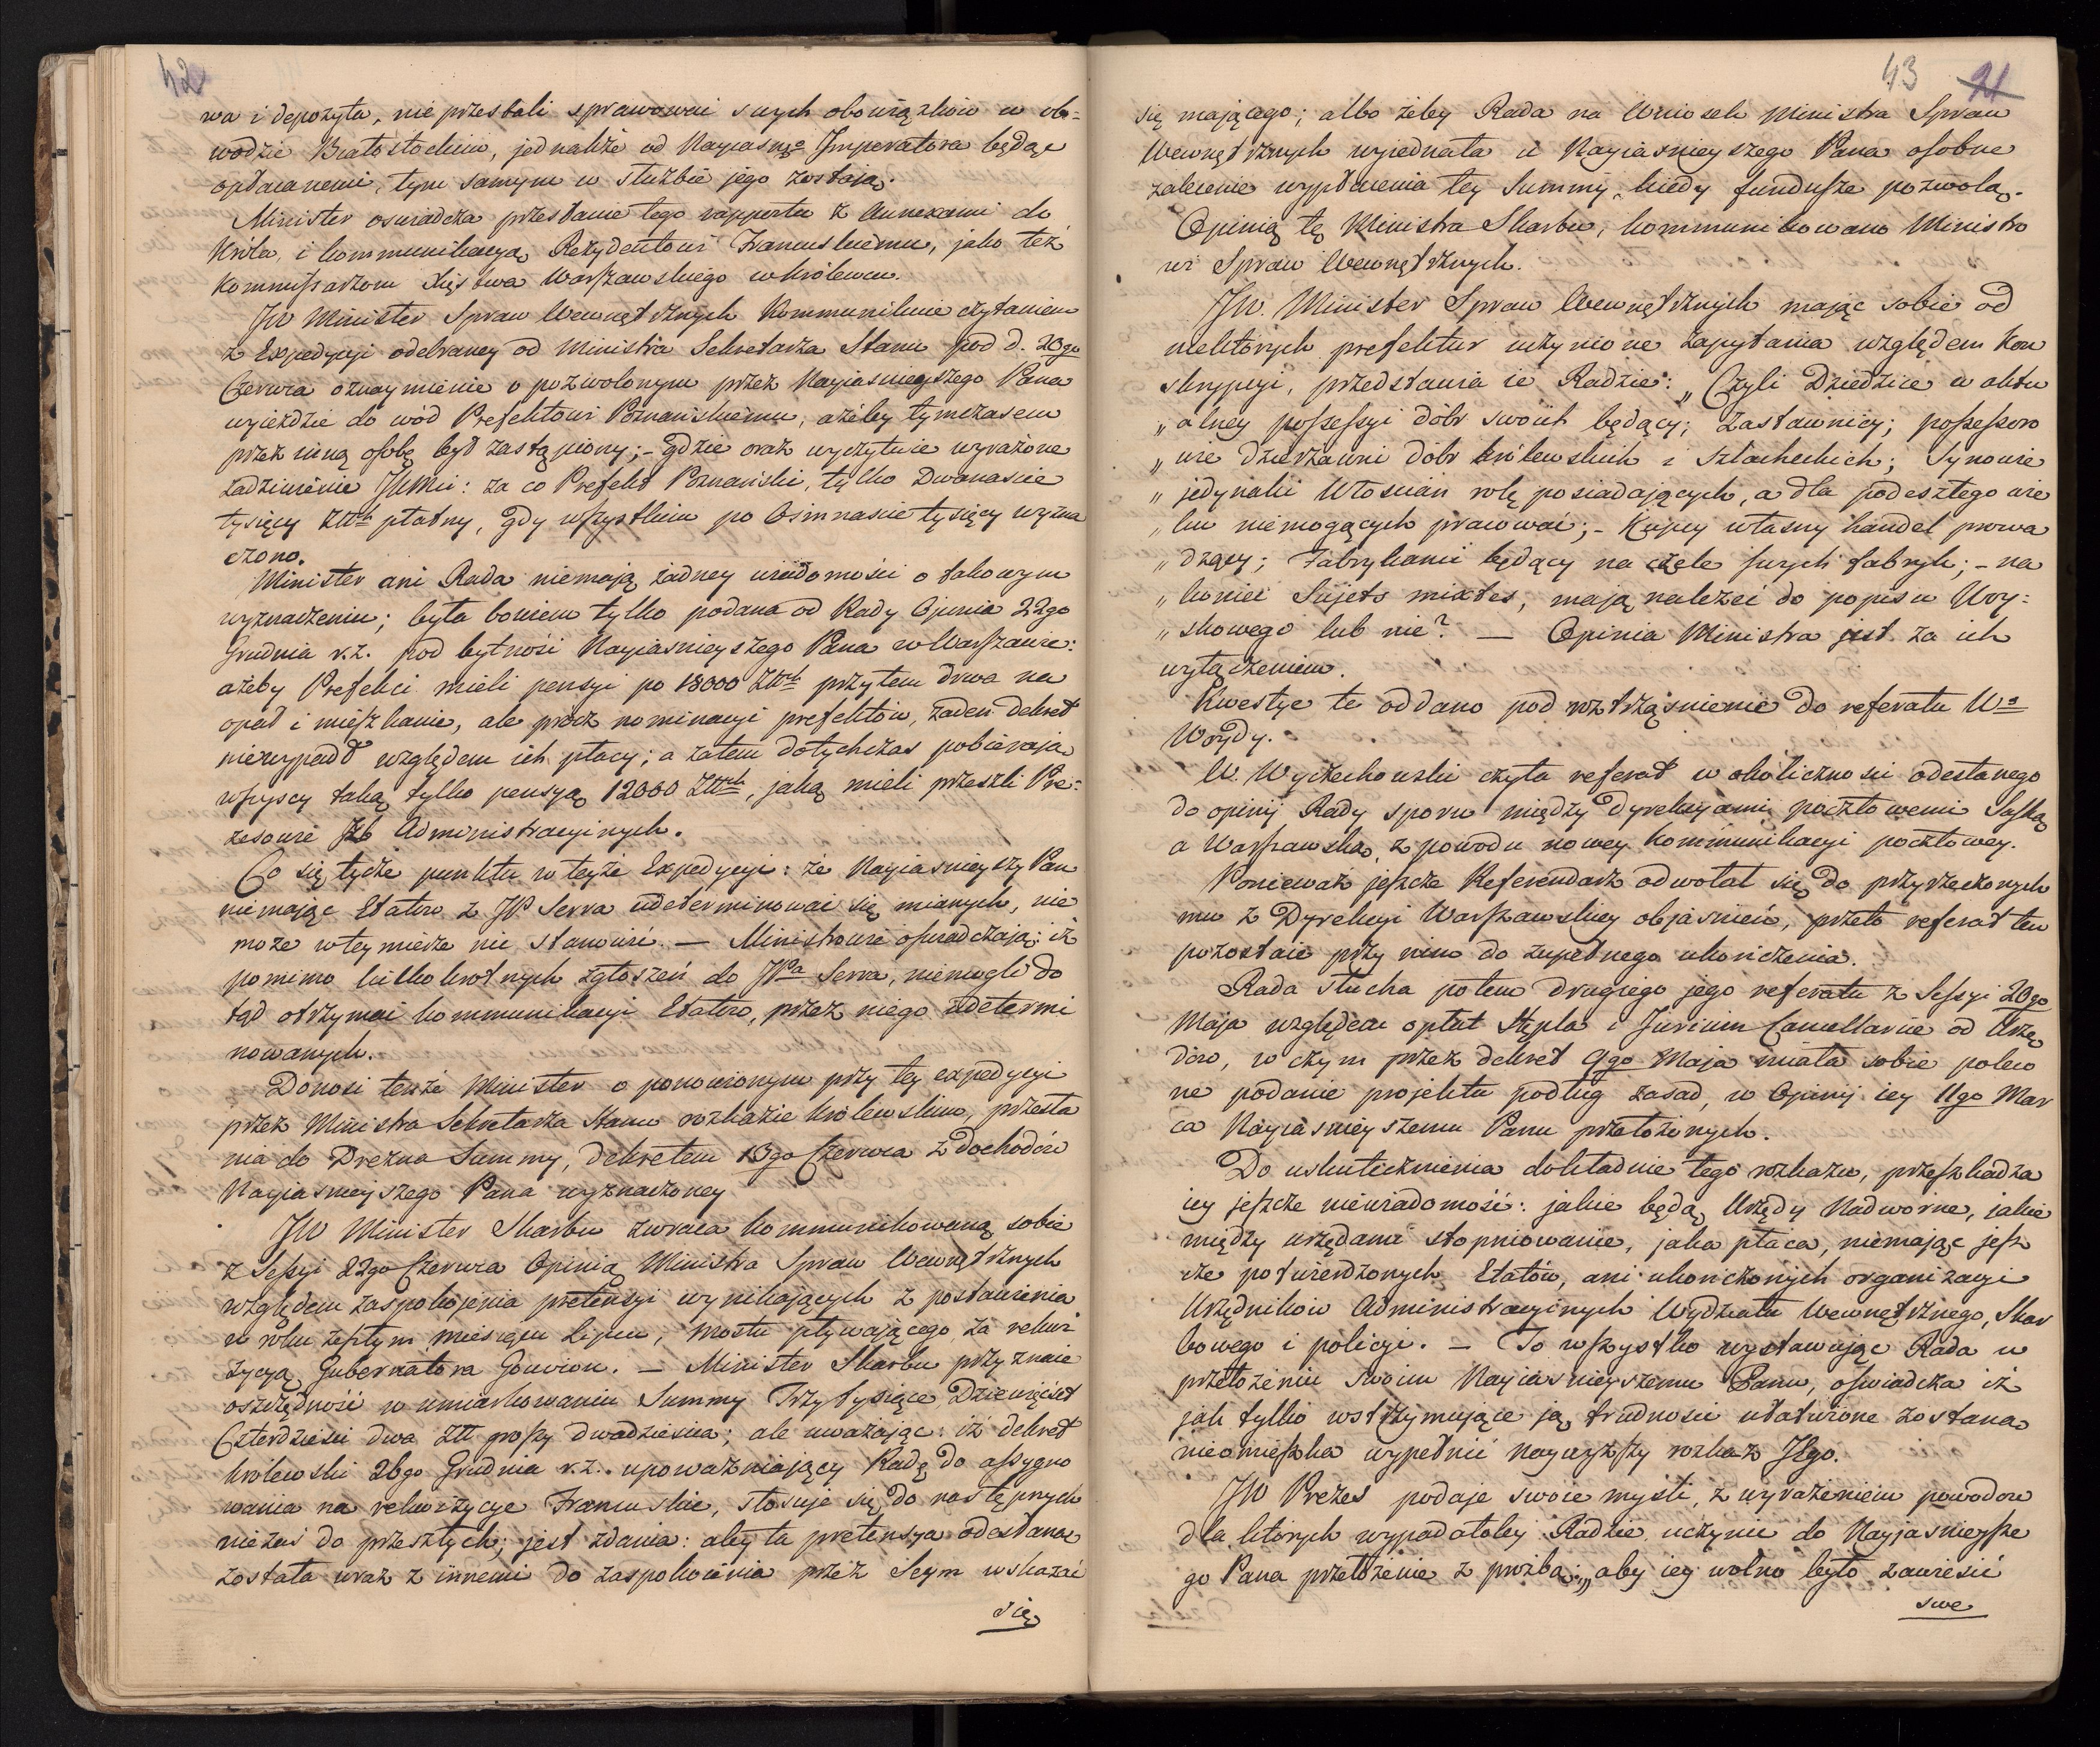 42
wa i depozyta, nie przestali sprawować swych obowiązków w ob=
wodzie Białostockim, jednakże od Nayiasnego Imperatora będąc
opłacanemi, tym samym w służbie jego zostają.
Minister oswiadcza przesłanie tego rapportu z Annexami do
Króla, i kommunikacyą Rezydentowi Francuskiemu, jako też
Kommissarzom Xięstwa Warszawskiego w Królewcu.
JW Minister Spraw Wewnętrznych Kommunikuie czytaniem
z Expedycyi odebraney od Ministra Sekretarza Stanu pod d. 20go
Czerwca oznaymienie o pozwolonym przez Nayiasnieyszego Pana
wyieździe do wód Prefektowi Poznańskiemu, ażeby tymczasem
przez inną osobę był zastąpiony; – gdzie oraz wyczytuie wyrażone
zadziwienie JKMci: za co Prefekt Poznański, tylko Dwanascie
tysięcy Złłch płatny, gdy wszystkim po Osmnascie tysięcy wyzna
czono.
Minister ani Rada niemają żadney wiadomości o takowym
wyznaczeniu; była bowiem tylko podana od Rady Opinia 22go
Grudnia r.z. pod bytność Nayiasnieyszego Pana w Warszawie:
ażeby Prefekci mieli pensyi po 18000 Złłch przytem drwa na
opał i mieszkanie, ale prócz nominacyi prefektów, żaden dekret
niewypadł względem ich płacy; a zatem dotychczas pobieraią
wszyscy taką tylko pensyą 12000 Złłch, jaką mieli przeszli Pre=
zesowie Izb Administracyinych.
Co się tycze punktu w teyże Expedycyi: że Nayiasnieyszy Pan
niemając Etatów z JP Serra udeterminować się mianych, nie
może w tey mierze nic stanowić. — Ministrowie oswiadczają: iż
pomimo kilkokrotnych zgłoszeń do JPa Serra, niemogli do
tąd otrzymać kommunikacyi Etatów, przez niego udetermi
nowanych.
Donosi tenże Minister o ponowionym przy tey expedycyi
przez Ministra Sekretarza Stanu rozkazie Królewskim, przesła
nia do Drezna Summy, dekretem 13go Czerwca z dochodów
Nayiasnieyszego Pana wyznaczoney
JW Minister Skarbu zwraca kommunikowaną sobie
z Sessyi 22go Czerwca Opinią Ministra Spraw Wewnętrznych
względem zaspokojenia pretensyi wynikających z postawienia
w roku zeszłym miesiącu Lipcu, mostu pływającego za rekwi
zycyą Gubernatora Gouvion. — Minister Skarbu przyznaie
oszczędność w umiarkowaniu Summy Trzy tysiące Dziewięćset
Czterdzieści dwa złł groszy dwadzieścia; ale uważając: iż dekret
królewski 26go Grudnia r.z. upoważniający Radę do assygno
wania na rekwizycye Francuskie, stosuje się do następnych
nieżaś do przeszłych; jest zdania: aby ta pretensya odesłaną
została wraz z innemi do zaspokoienia przez Seym wskazać
się
43 21
się mającego; albo żeby Rada na Wniosek Ministra Spraw
Wewnętrznych wyiednała u Nayiasnieyszego Pana osobne
zalecenie wypłacenia tey Summy, kiedy fundusze pozwolą.
Opinią tę Ministra Skarbu, kommunikowano Ministro
wi Spraw Wewnętrznych.
JW. Minister Spraw Wewnętrznych mając sobie od
niektórych prefektur uczynione zapytania względem Kon
skrypcyi, przedstawia ie Radzie: „Czyli Dziedzice w aktu
„alney possessyi dóbr swoich będący; Zastawnicy; possessoro
„wie dzierżawni dóbr królewskich i szlacheckich; Synowie
„jedynacki Włościan rolę posiadających, a dla podeszłego wie
„ku niemogących pracować; – Kupcy własny handel prowa
„dzący; Fabrykanci będący na czele swych fabryk; – na
„koniec Sujets mixtes, mają należeć do popisu Woy=
„skowego lub nie? — Opinia Ministra jest za ich
wyłączeniem.
Kwestye te oddano pod roztrząśnienie do referatu Wo
Woydy.
W. Wyczechowski czyta referat w okoliczności odesłanego
do opinij Rady sporu między Dyrekcyami pocztowemi Saską
a Warszawską, z powodu nowey kommunikacyi pocztowey.
Ponieważ jeszcze Referendarz odwołał się do przyrzeczonych
mu z Dyrekcyi Warszawskiey objaśnień, przeto referat ten
pozostaie przy nim do zupełnego ukończenia.
Rada słucha potem drugiego jego referatu z Sessyi 20go
Maja względem opłat Stępla i Jurium Cancellariae od Urzę
dów, w czym przez dekret 9go Maja miała sobie poleco
ne podanie projektu podług zasad, w Opinij iey 11go Mar
ca Nayiasnieyszemu Panu przełożonych.
Do uskutecznienia dokładnie tego rozkazu, przeszkadza
iey jeszcze niewiadomość: jakie będą Urzędy Nadworne, jakie
między urzędami stopniowanie, jaka płaca, niemając jesz
cze potwierdzonych Etatów, ani ukończonych organizacyi
Urzędników Administracyinych Wydziału Wewnętrznego, Skar
bowego i policyi. — To wszystko wystawując Rada w
przełożeniu swoim Nayiasnieyszemu Panu, oswiadcza iż
jak tylko wstrzymujące ją trudnosci ułatwione zostaną
nieomieszka wypełnić naywyższy rozkaz Jego.
JW Prezes podaje swoie mysli, z wyrażeniem powodów
dla których wypadałoby Radzie uczynić do Nayjasnieysze
go Pana przełożenie z prozbą: „aby iey wolno było zawiesić
swe